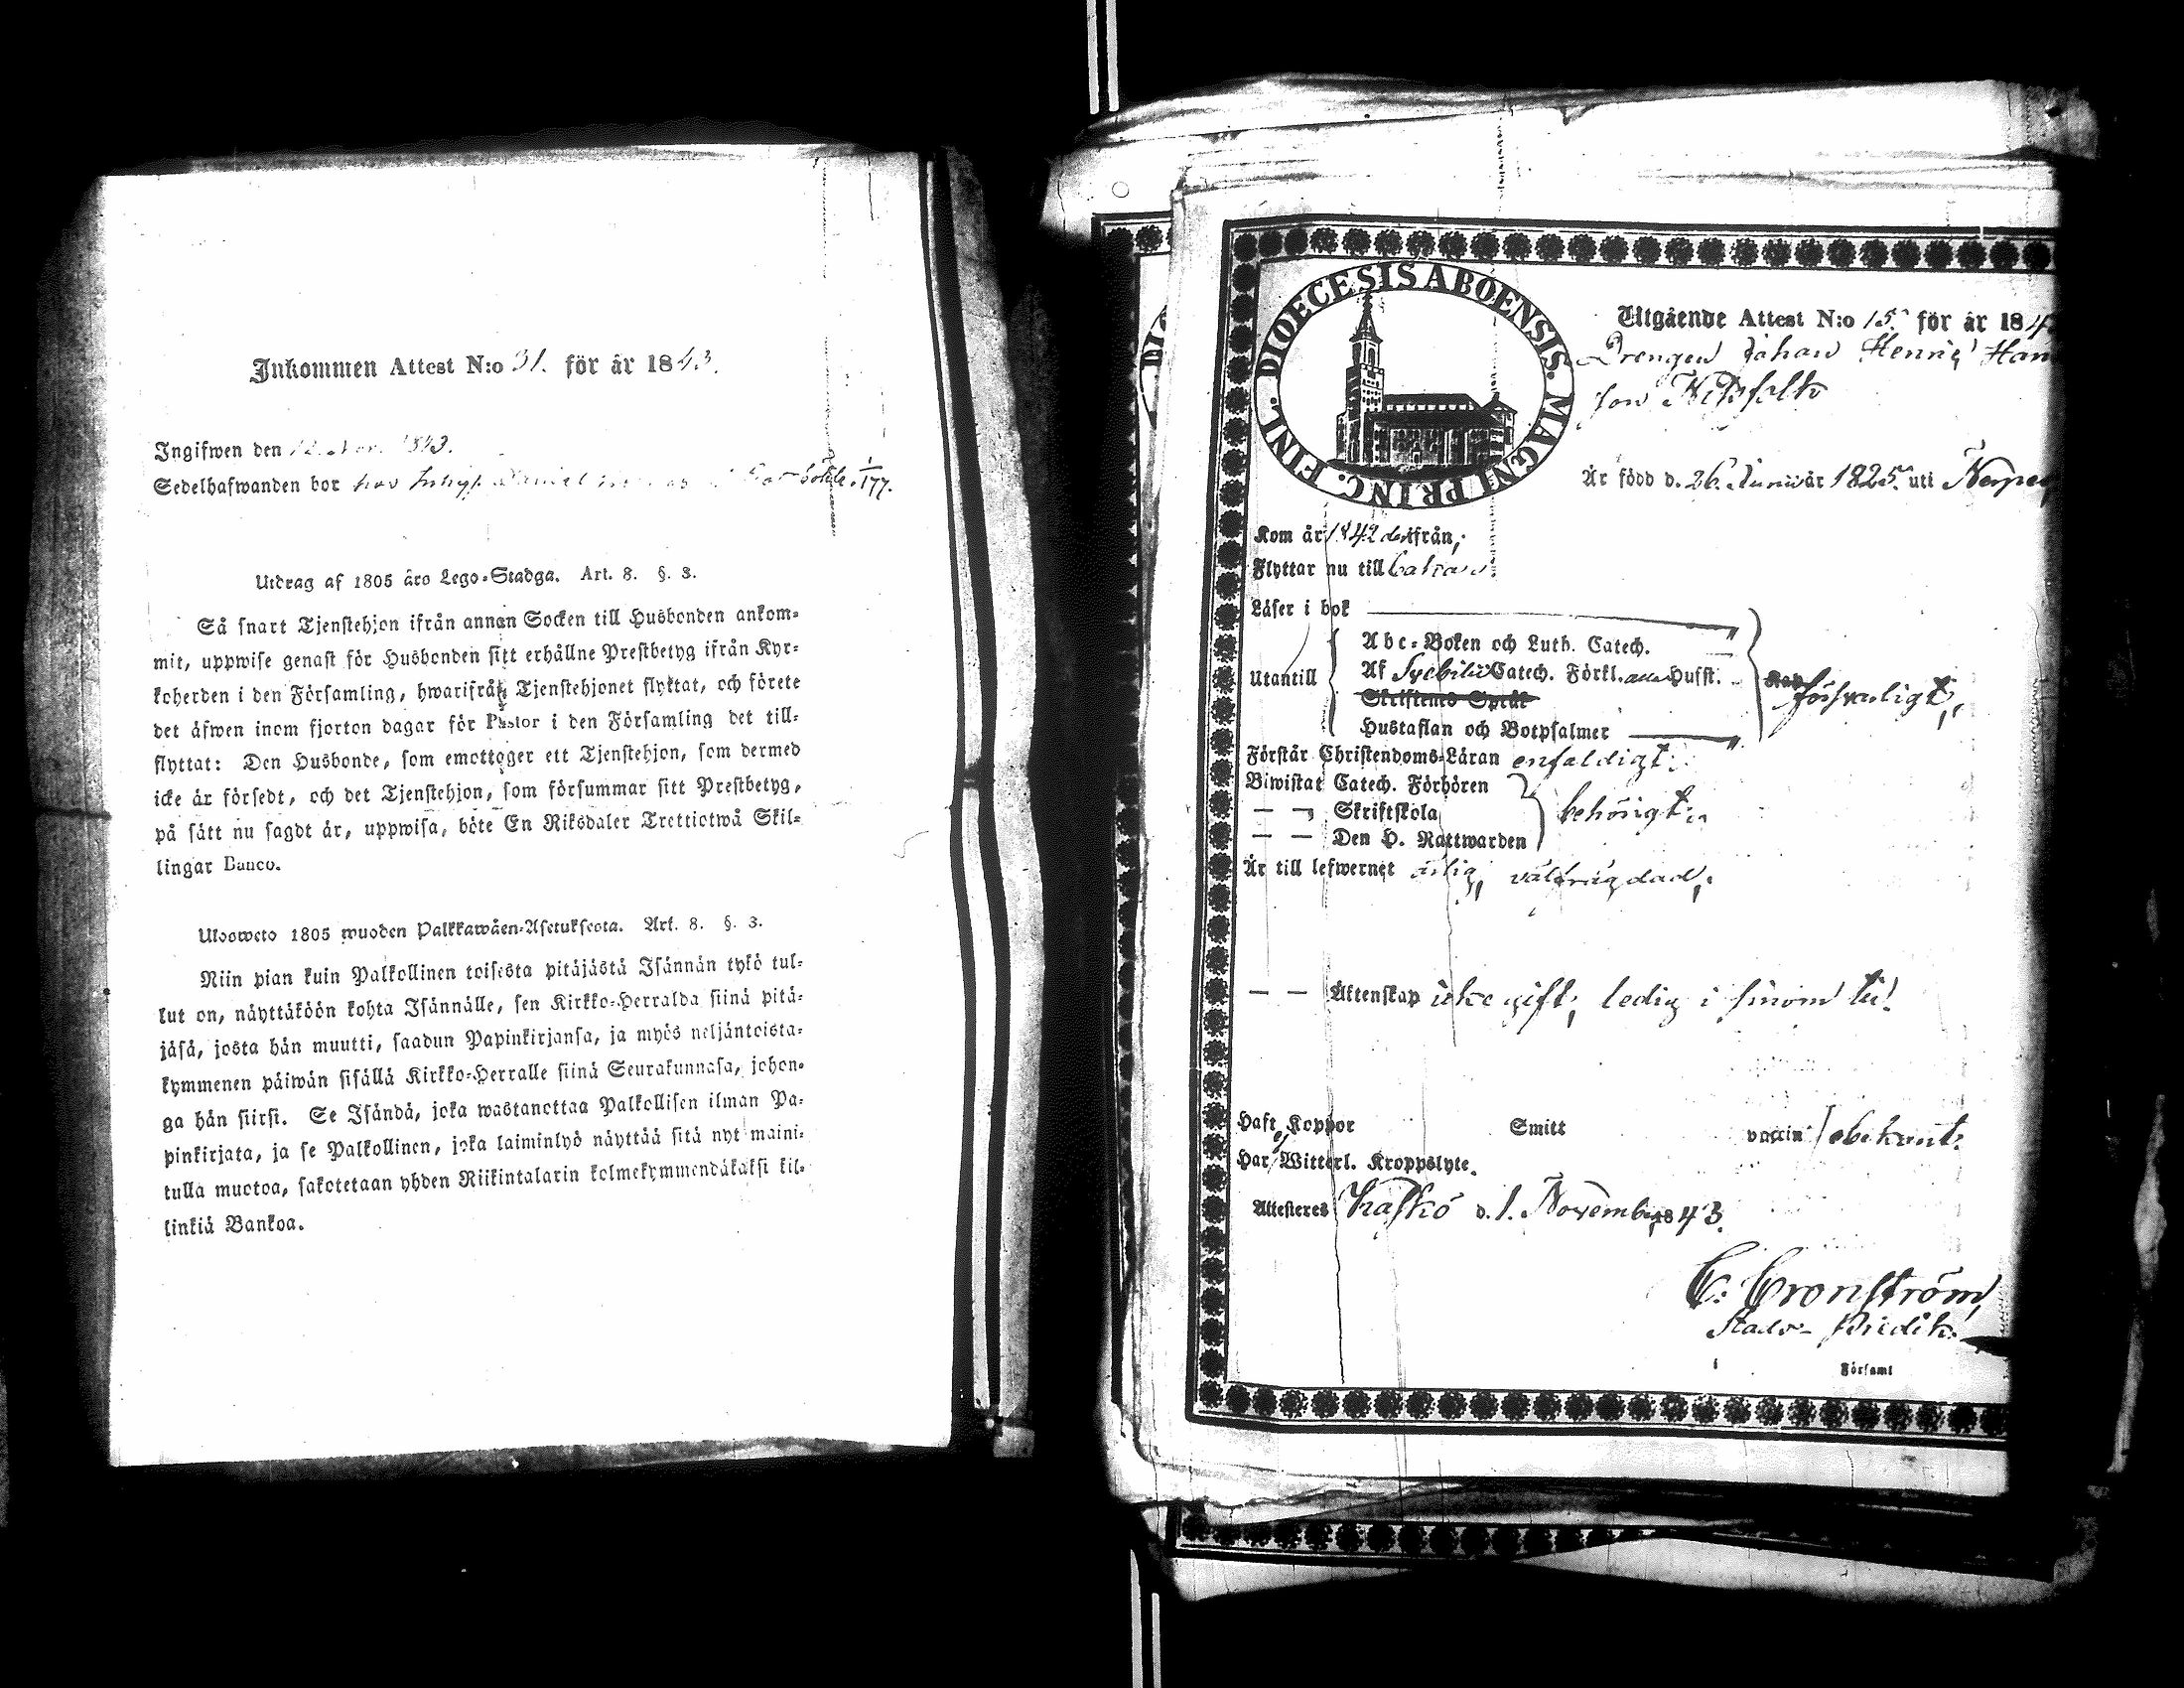 Inkommen Attest N:o 31. för år 1843.
Ingifwen den 12. Nov. 1843.
Sedelhafwanden bor hos 1/177.
Utdrag af 1805 års Lego-Stadga. Art. 8. §. 3.
Så snart Tjenstehjon ifrån annan Socken till Husbonden ankom-
mit, uppwise genast för Husbonden sitt erhållne Prestbetyg ifrån Kyr-
koherden i den Församling, hwarifrån Tjenstehjonet flyktat, och förete
det äfwen inom fjorton dagar för Pastor i den Församling det till-
flyttat: Den Husbonde, som emottager ett Tjenstehjon, som dermed
icke är försedt, och det Tjenstehjon, som försummar sitt Prestbetyg,
på sätt nu sagdt är, uppwisa, böte En Riksdaler Trettiotwå Skil-
lingar Banco.
Ulosweto 1805 wuoden Palkkawäen-Asetuksesta. Art. 8. §. 3.
Niin pian kuin Palkollinen toisesta pitäjästä Isännän tykö tul-
lut on, näyttäköön kohta Isännälle, sen Kirkko-Herralda siinä pitä-
jäsä, josta hän muutti, saadun Papinkirjansa, ja myös neljäntoista-
kymmenen päiwän sisällä Kirkko-Herralle siinä Seurakunnasa, johon-
ga hän siirsi. Se Isändä, joka wastanottaa Palkollisen ilman Pa-
pinkirjata, ja se Palkollinen, joka laiminlyö näyttää sitä nyt maini-
tulla muotoa, sakotetaan yhden Riikintalarin kolmekymmendäkaksi kil-
linkiä Bankoa.
DIOECESIS ABOENSIS. MAGNI PRINC. FINL.
Utgående Attest N:o 15. för år 184
Drengen Johan Henric Han
son
Är född d. 26. Junii år 1825. uti
Kom år 1842 derifrån,
Flyttar nu till
Läser i bok
Utantill
Abc-Boken och Luth. Catech.
Af Svebilii Catech. Förkl. Hufst.
Skriftenes Språk
Hustaflan och Botpsalmer
försvarligt,
Förstår Christendoms-Läran enfaldigt
Biwistat Catech. Förhören
— — Skriftskola
— — Den H. Nattwarden
behörigt.
Är till lefwernet ärlig, välfrägdad,
— — Äktenskap icke gift, ledig i sinom tid.
Haft Koppor Smitt vaccin obekant.
Har ej Witterl. Kroppslyte.
Attesteres Kaskö d. 1. November 1843.
C. Cronström,
Stads-Predik.
i Församl